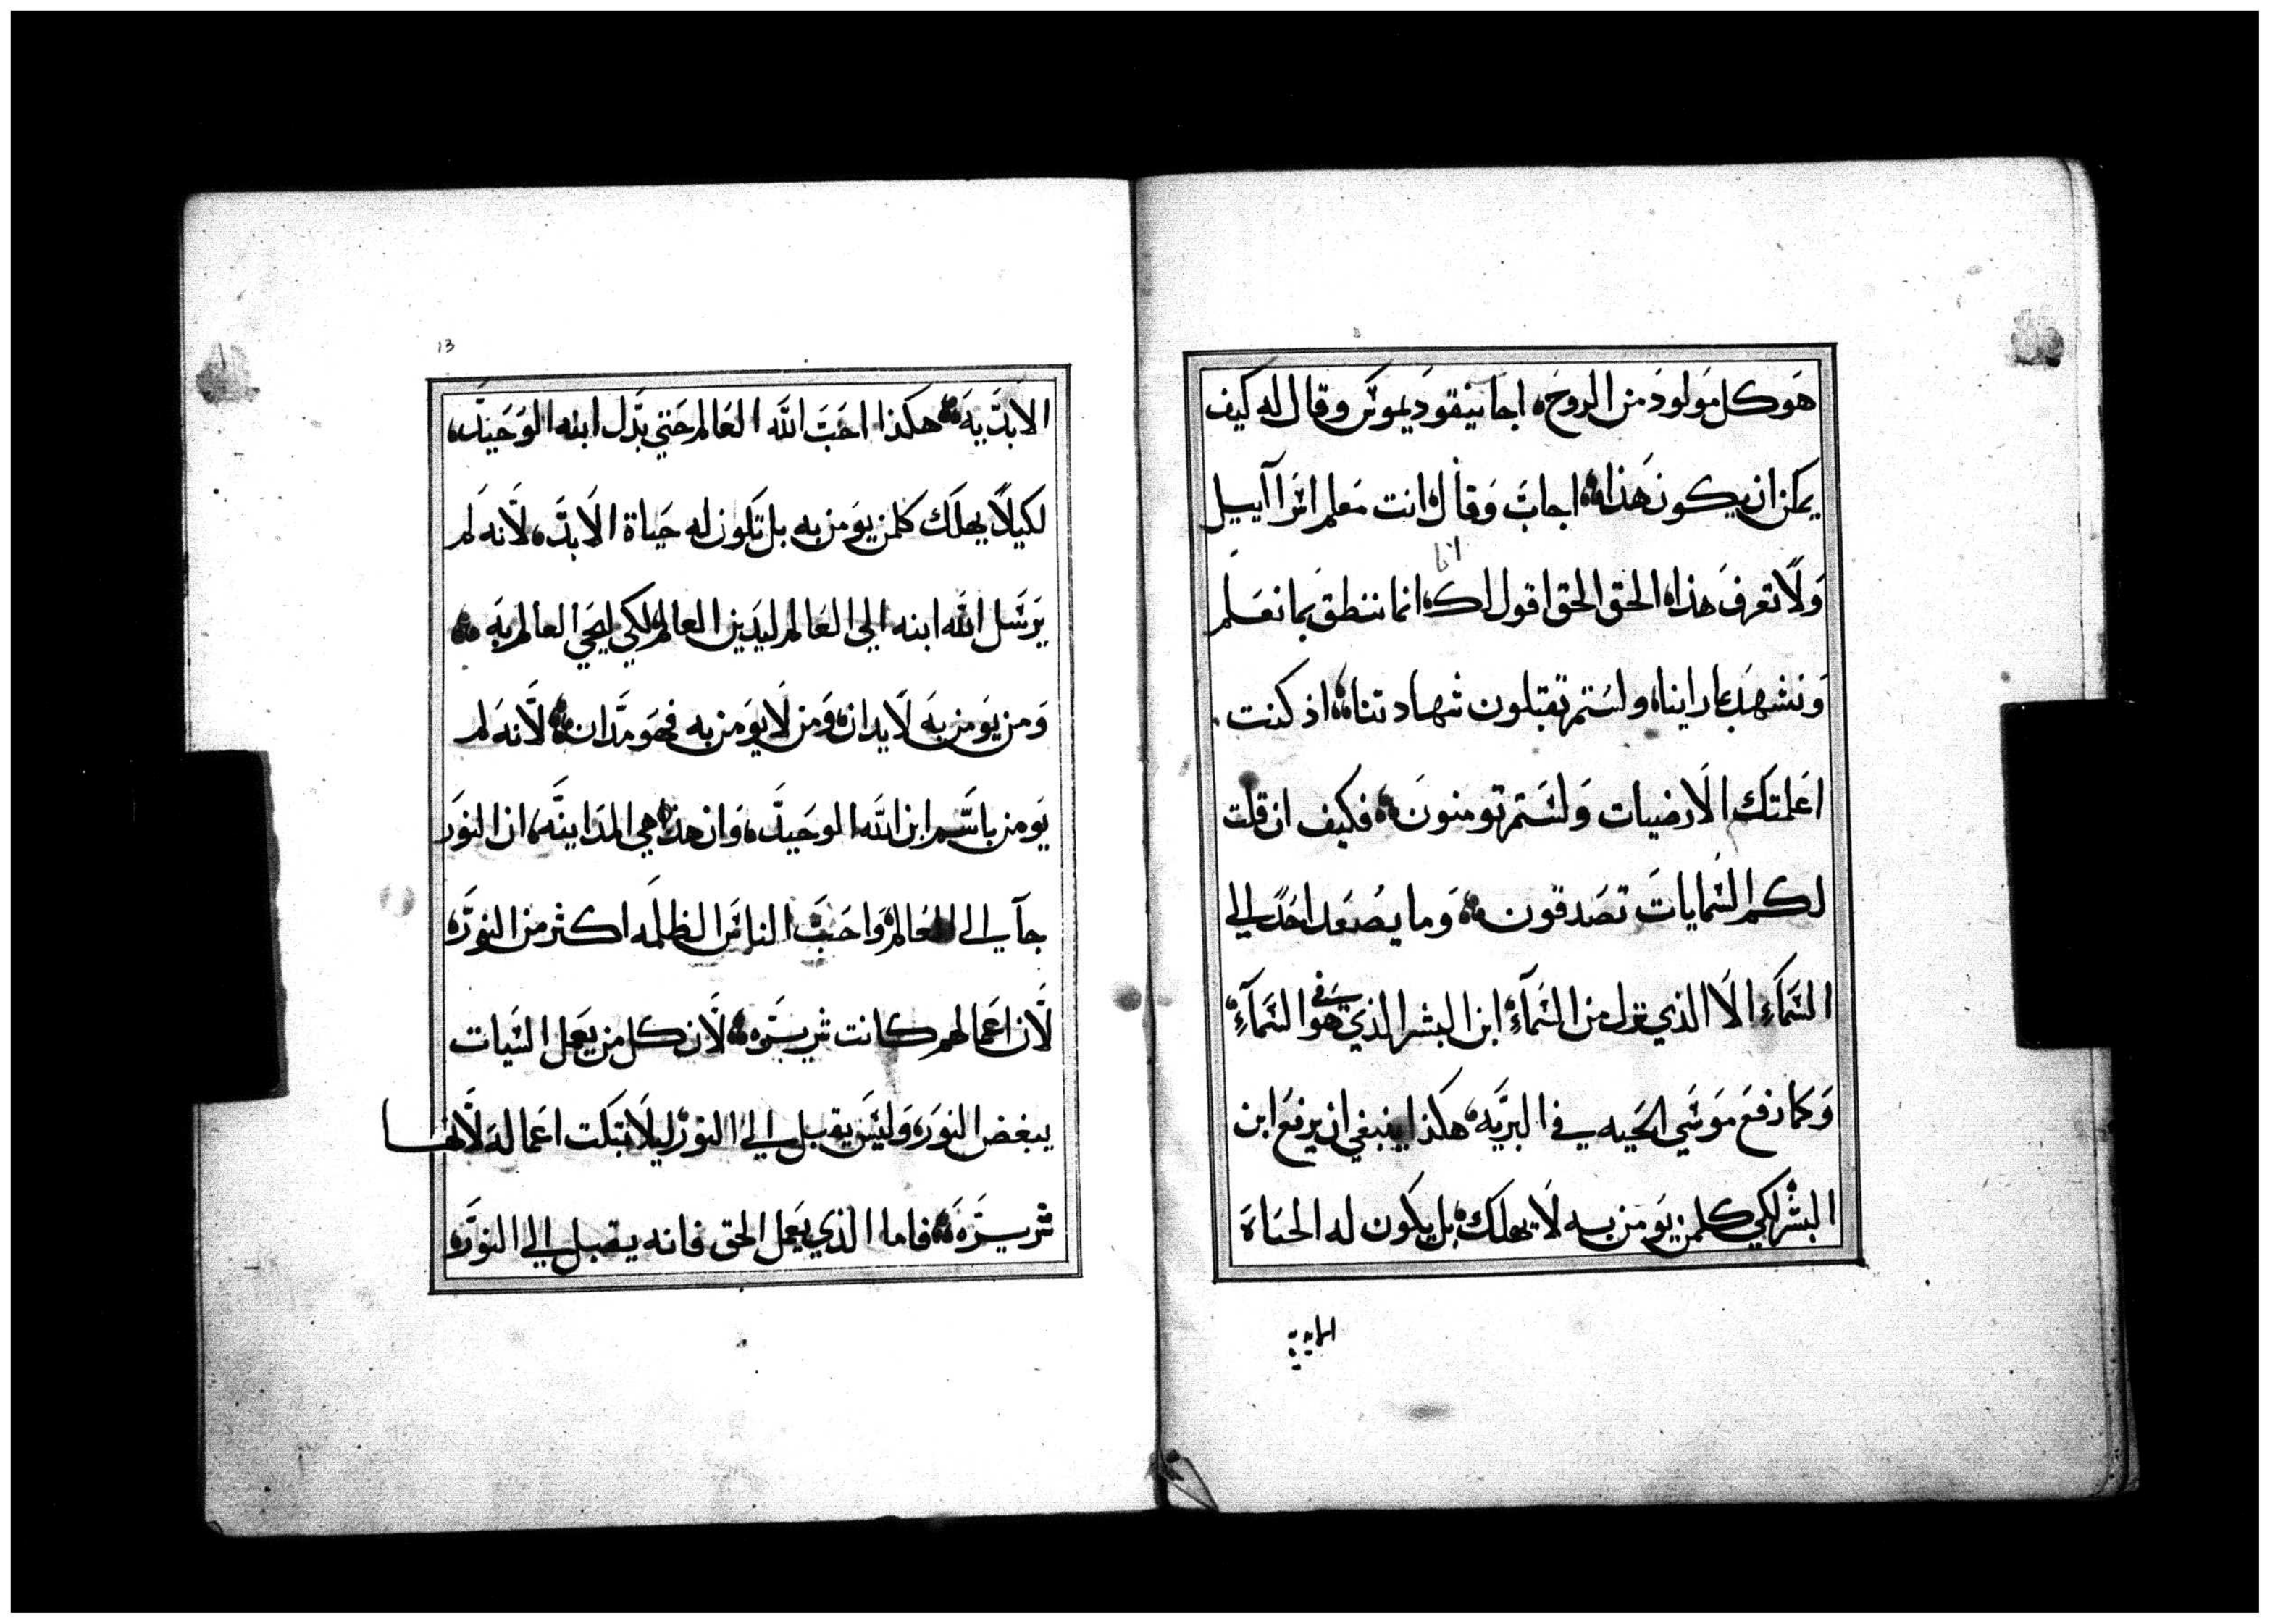 هو كل مولود من الروح، اجاب نيقوديموس وقال له كيف
يمكن ان يكون هذا، اجاب وقال انت معلم اسرآييل
ولا تعرف هذا، الحق الحق اقول لك، انما ننطق بما نعلم
انا
ونشهد بما راينا، ولستم تقبلون شهادتنا، اذ كنت
اعلمتك الارضيات ولستم تومنون، فكيف ان قلت
لكم السمايات تصدقون، وما يصعد احد الي
السمآء الا الذي نزل من السمآء، ابن البشر الذي هو في السمآء
وكما رفع موسي الحيه في البريه، هكذا ينبغي ان يرفع ابن
البشر لكي كلمن يومن به لا يهلك، بل يكون له الحياة
الابدية
13
الابديه، هكذا احب الله العالم حتي بدل ابنه الوحيد،
لكيلا يهلك كلمن يومن به بل تكون له حياة الابد، لانه لم
يرسل الله ابنه الي العالم ليدين العالم، لكي يحيي العالم به،
ومن يومن به لا يدان، ومن لا يومن به فهو مدان، لانه لم
يومن باسم ابن الله الوحيد، وان هذه هي المداينه، ان النور
جآ الي العالم، واحب الناس الظلمه اكثر من النور،
لان اعمالهم كانت شريره، لان كل من يعمل السيات
يبغض النور، وليس يقبل الي النور، ليلا تبكت اعماله لانها
شريره، فاما الذي يعمل الحق فانه يقبل الي النور،